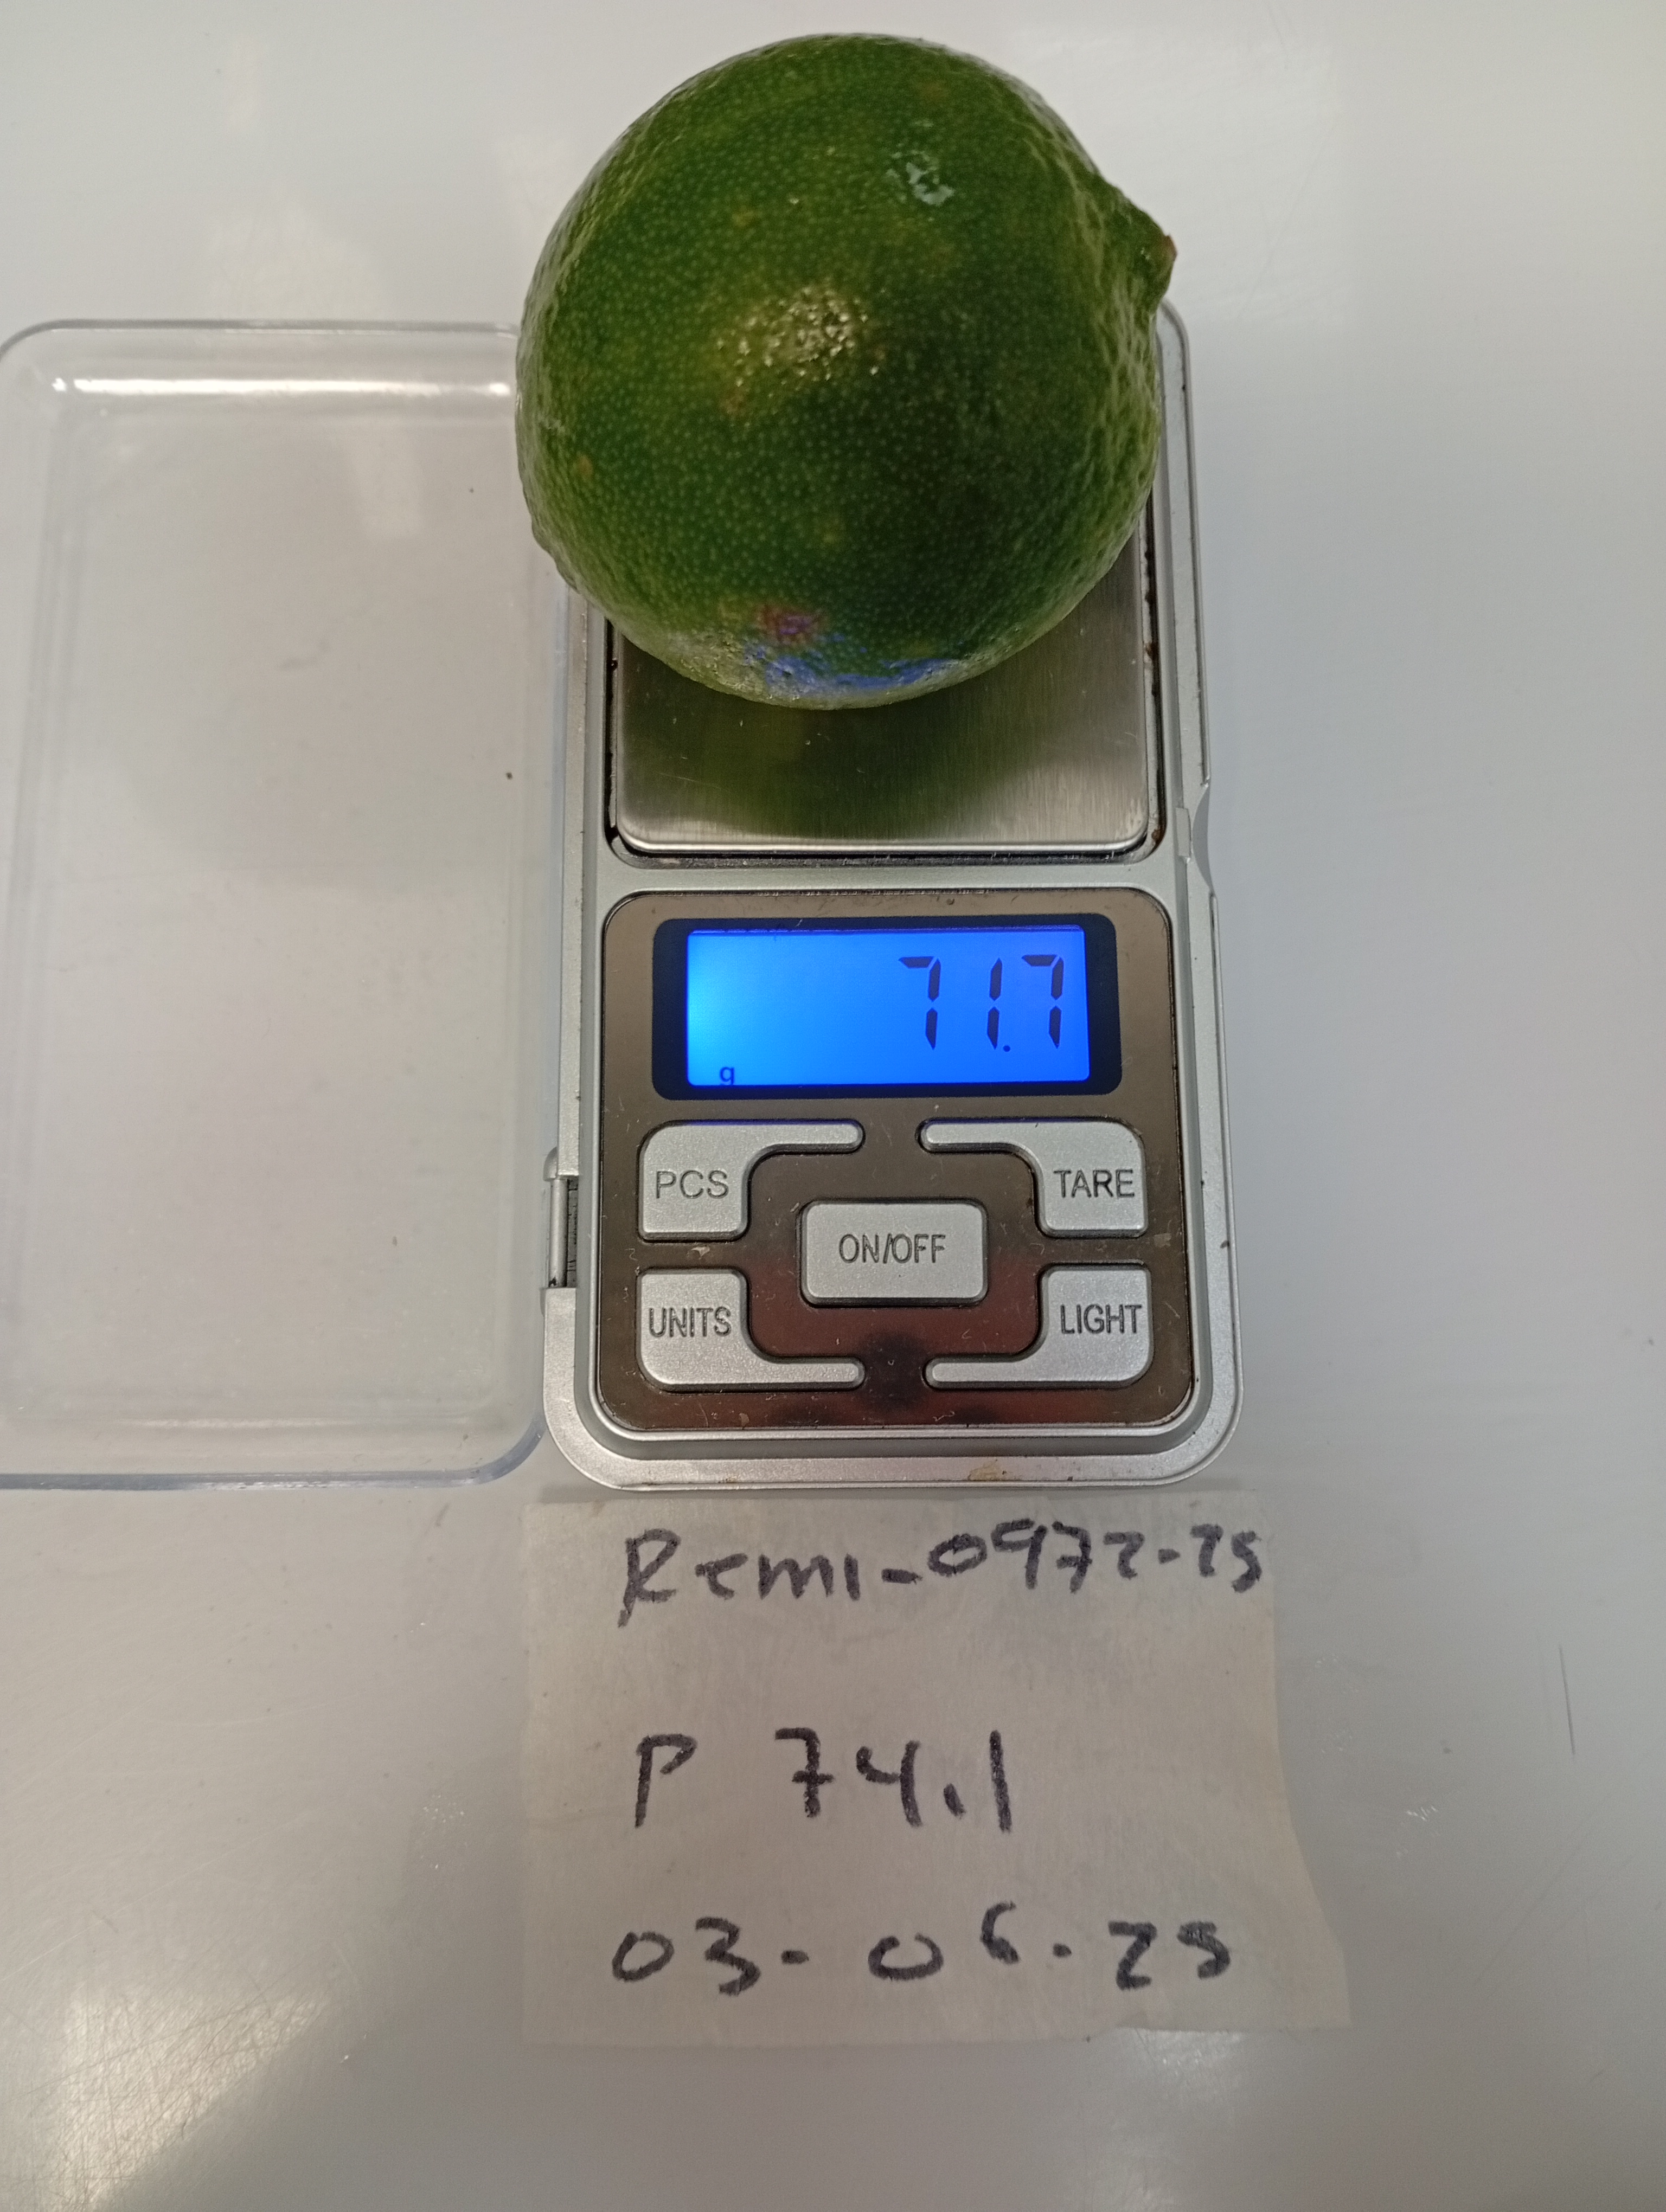 71.7
g
PCS
TARE
ON/OFF
UNITS
LIGHT
Remi-0972-25
P 74.1
03-06-25